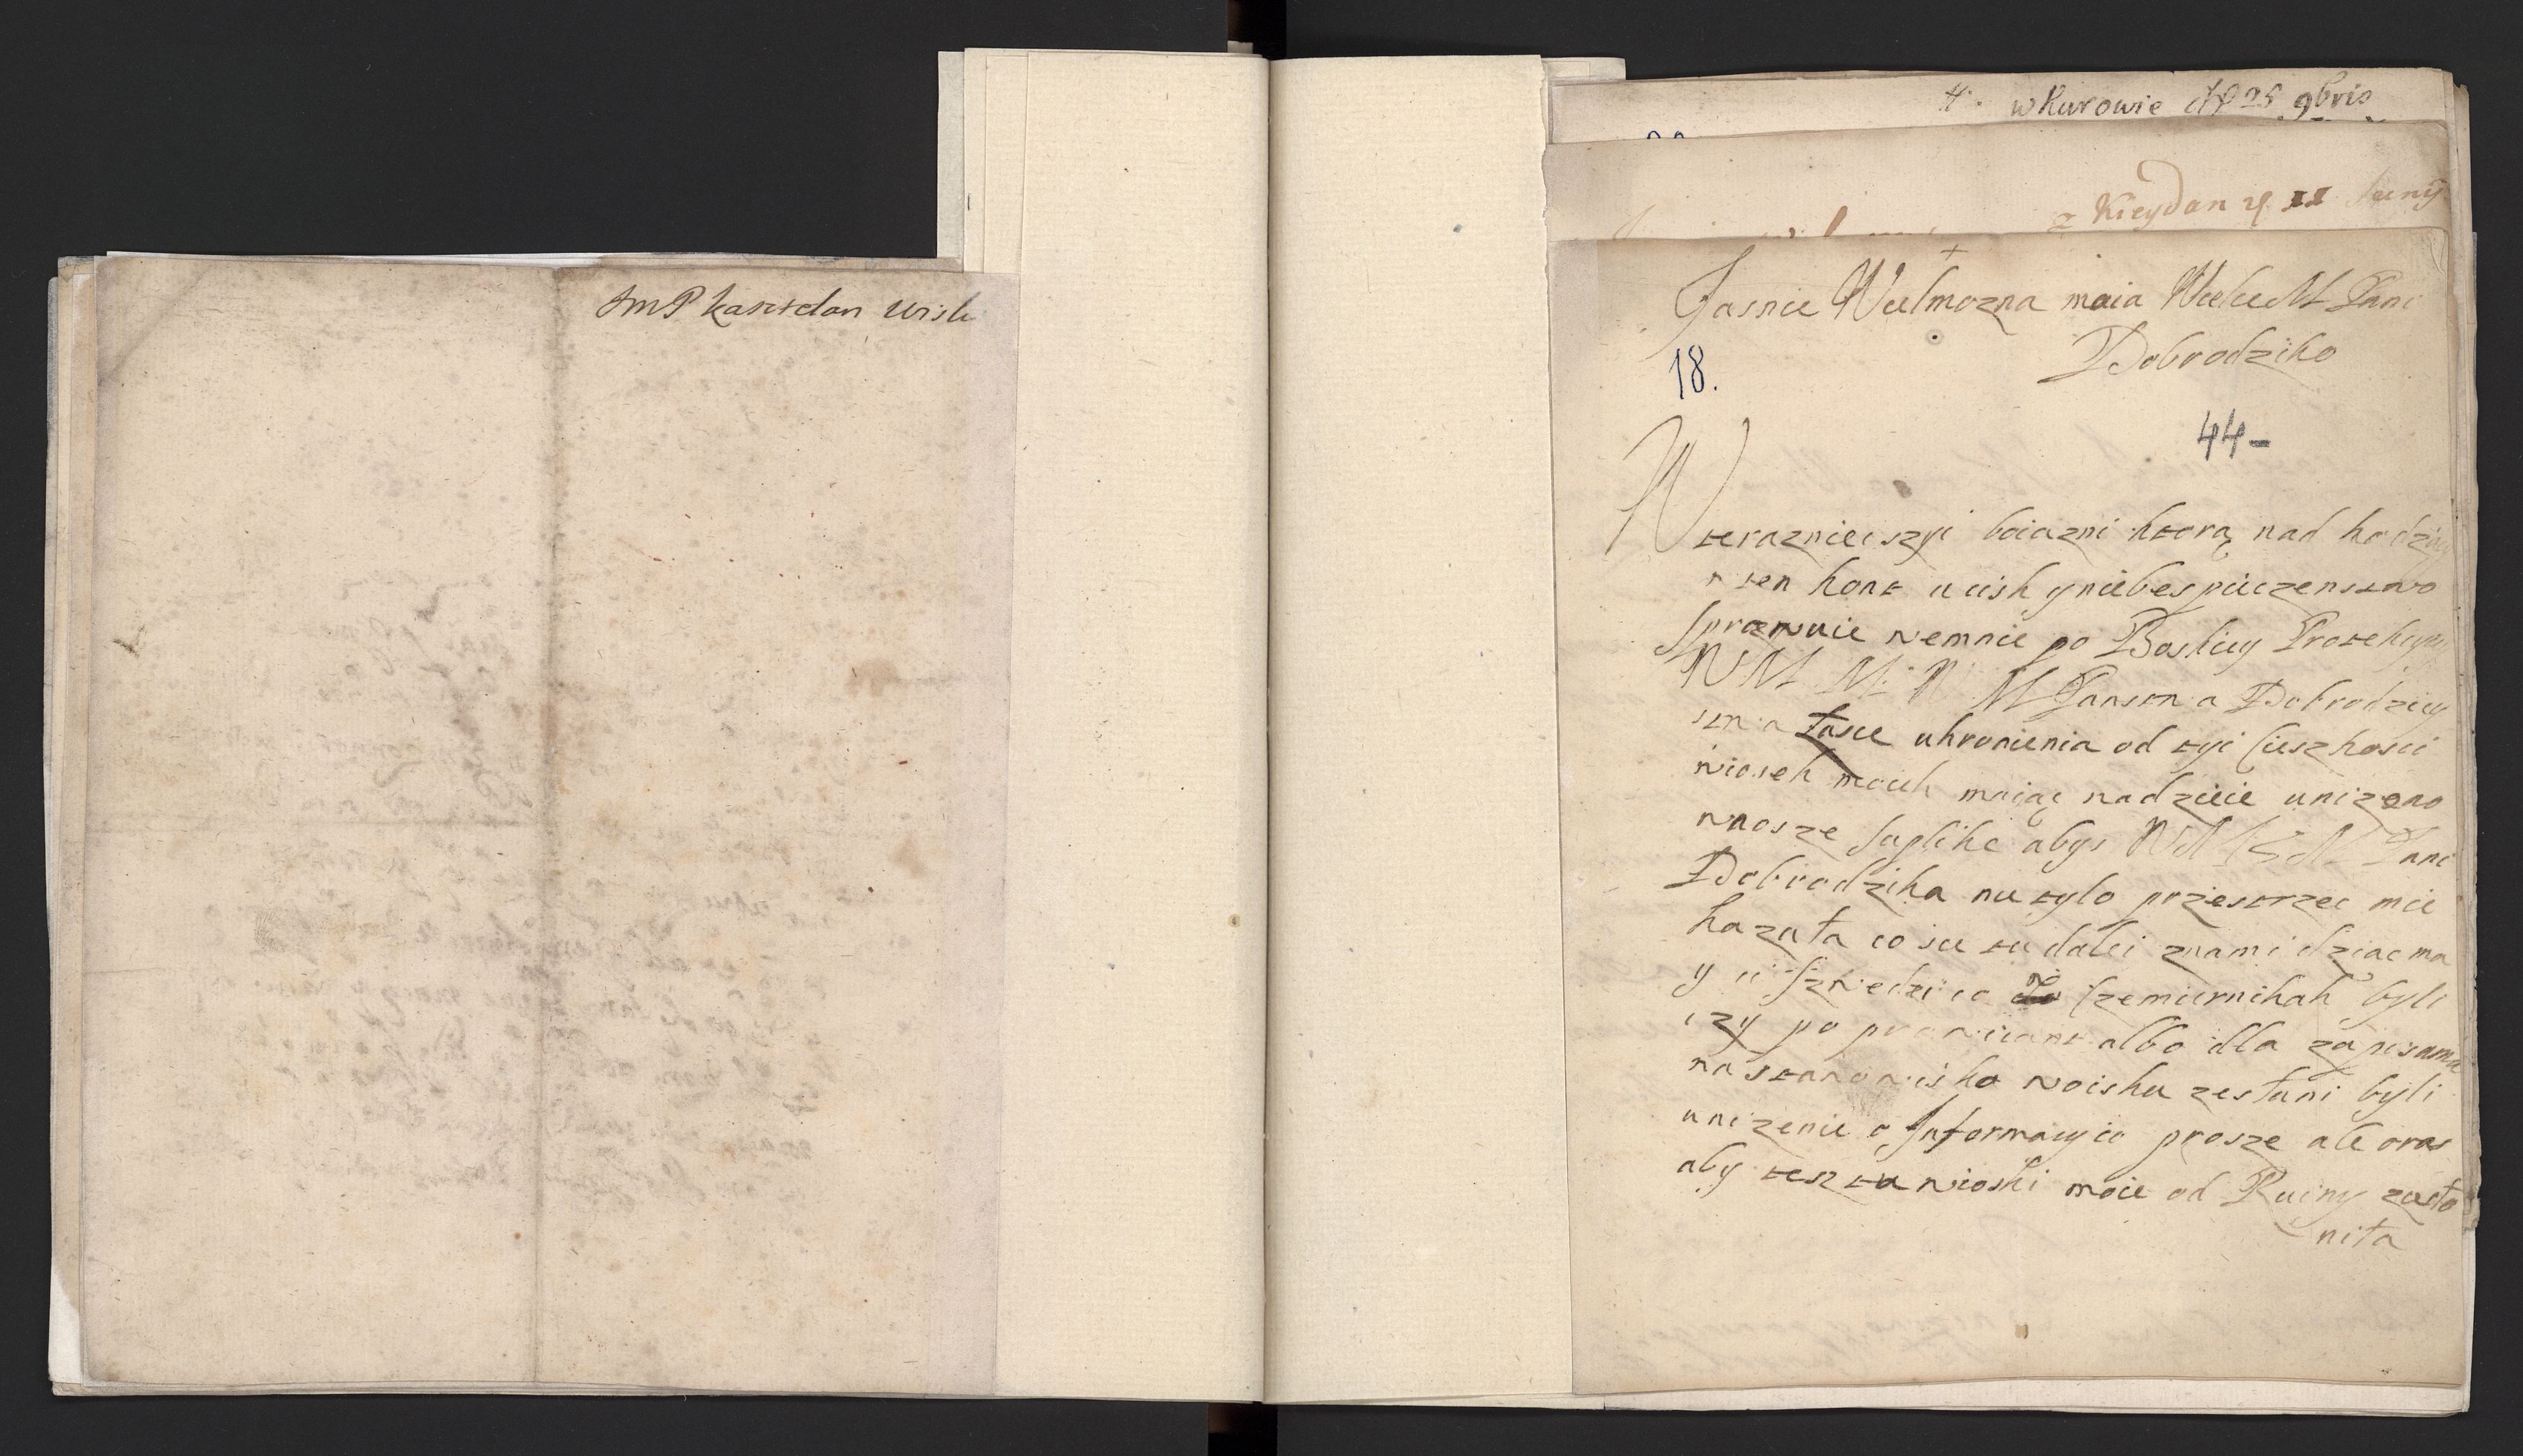 JmP kasztelan wisli
4. w Kurowie d 25 9bris
z Kieydan 11 Juny
Jasnie Wielmozna moia Wielce M Pani
Dobrodziko
18.
44-
W terazniei szyi boiazni ktorą nad hodzący
w ten kont ucisk y niebespieczenstwo
sprawuie wemnie po Boskiey Protekcyi
WM M W M Panstwa Dobrodziey
stwa łasce uhronienia od tyi Cieszkosci
wiosek moich maiąc nadzieie unizono
wnosze suplike abys WM Pani
Dobrodzika nie tylo przestrzec mie
kazała co sie tu dalei znami dziac ma
y ci Szwedzi co w Czemiernikah byli
czy po prowiant albo dla zapisania
na stanowisko woisku zesłani byli
unizenie o Informacyio prosze ale oras
aby tesz ta wioski moie od Ruiny zasło
niła